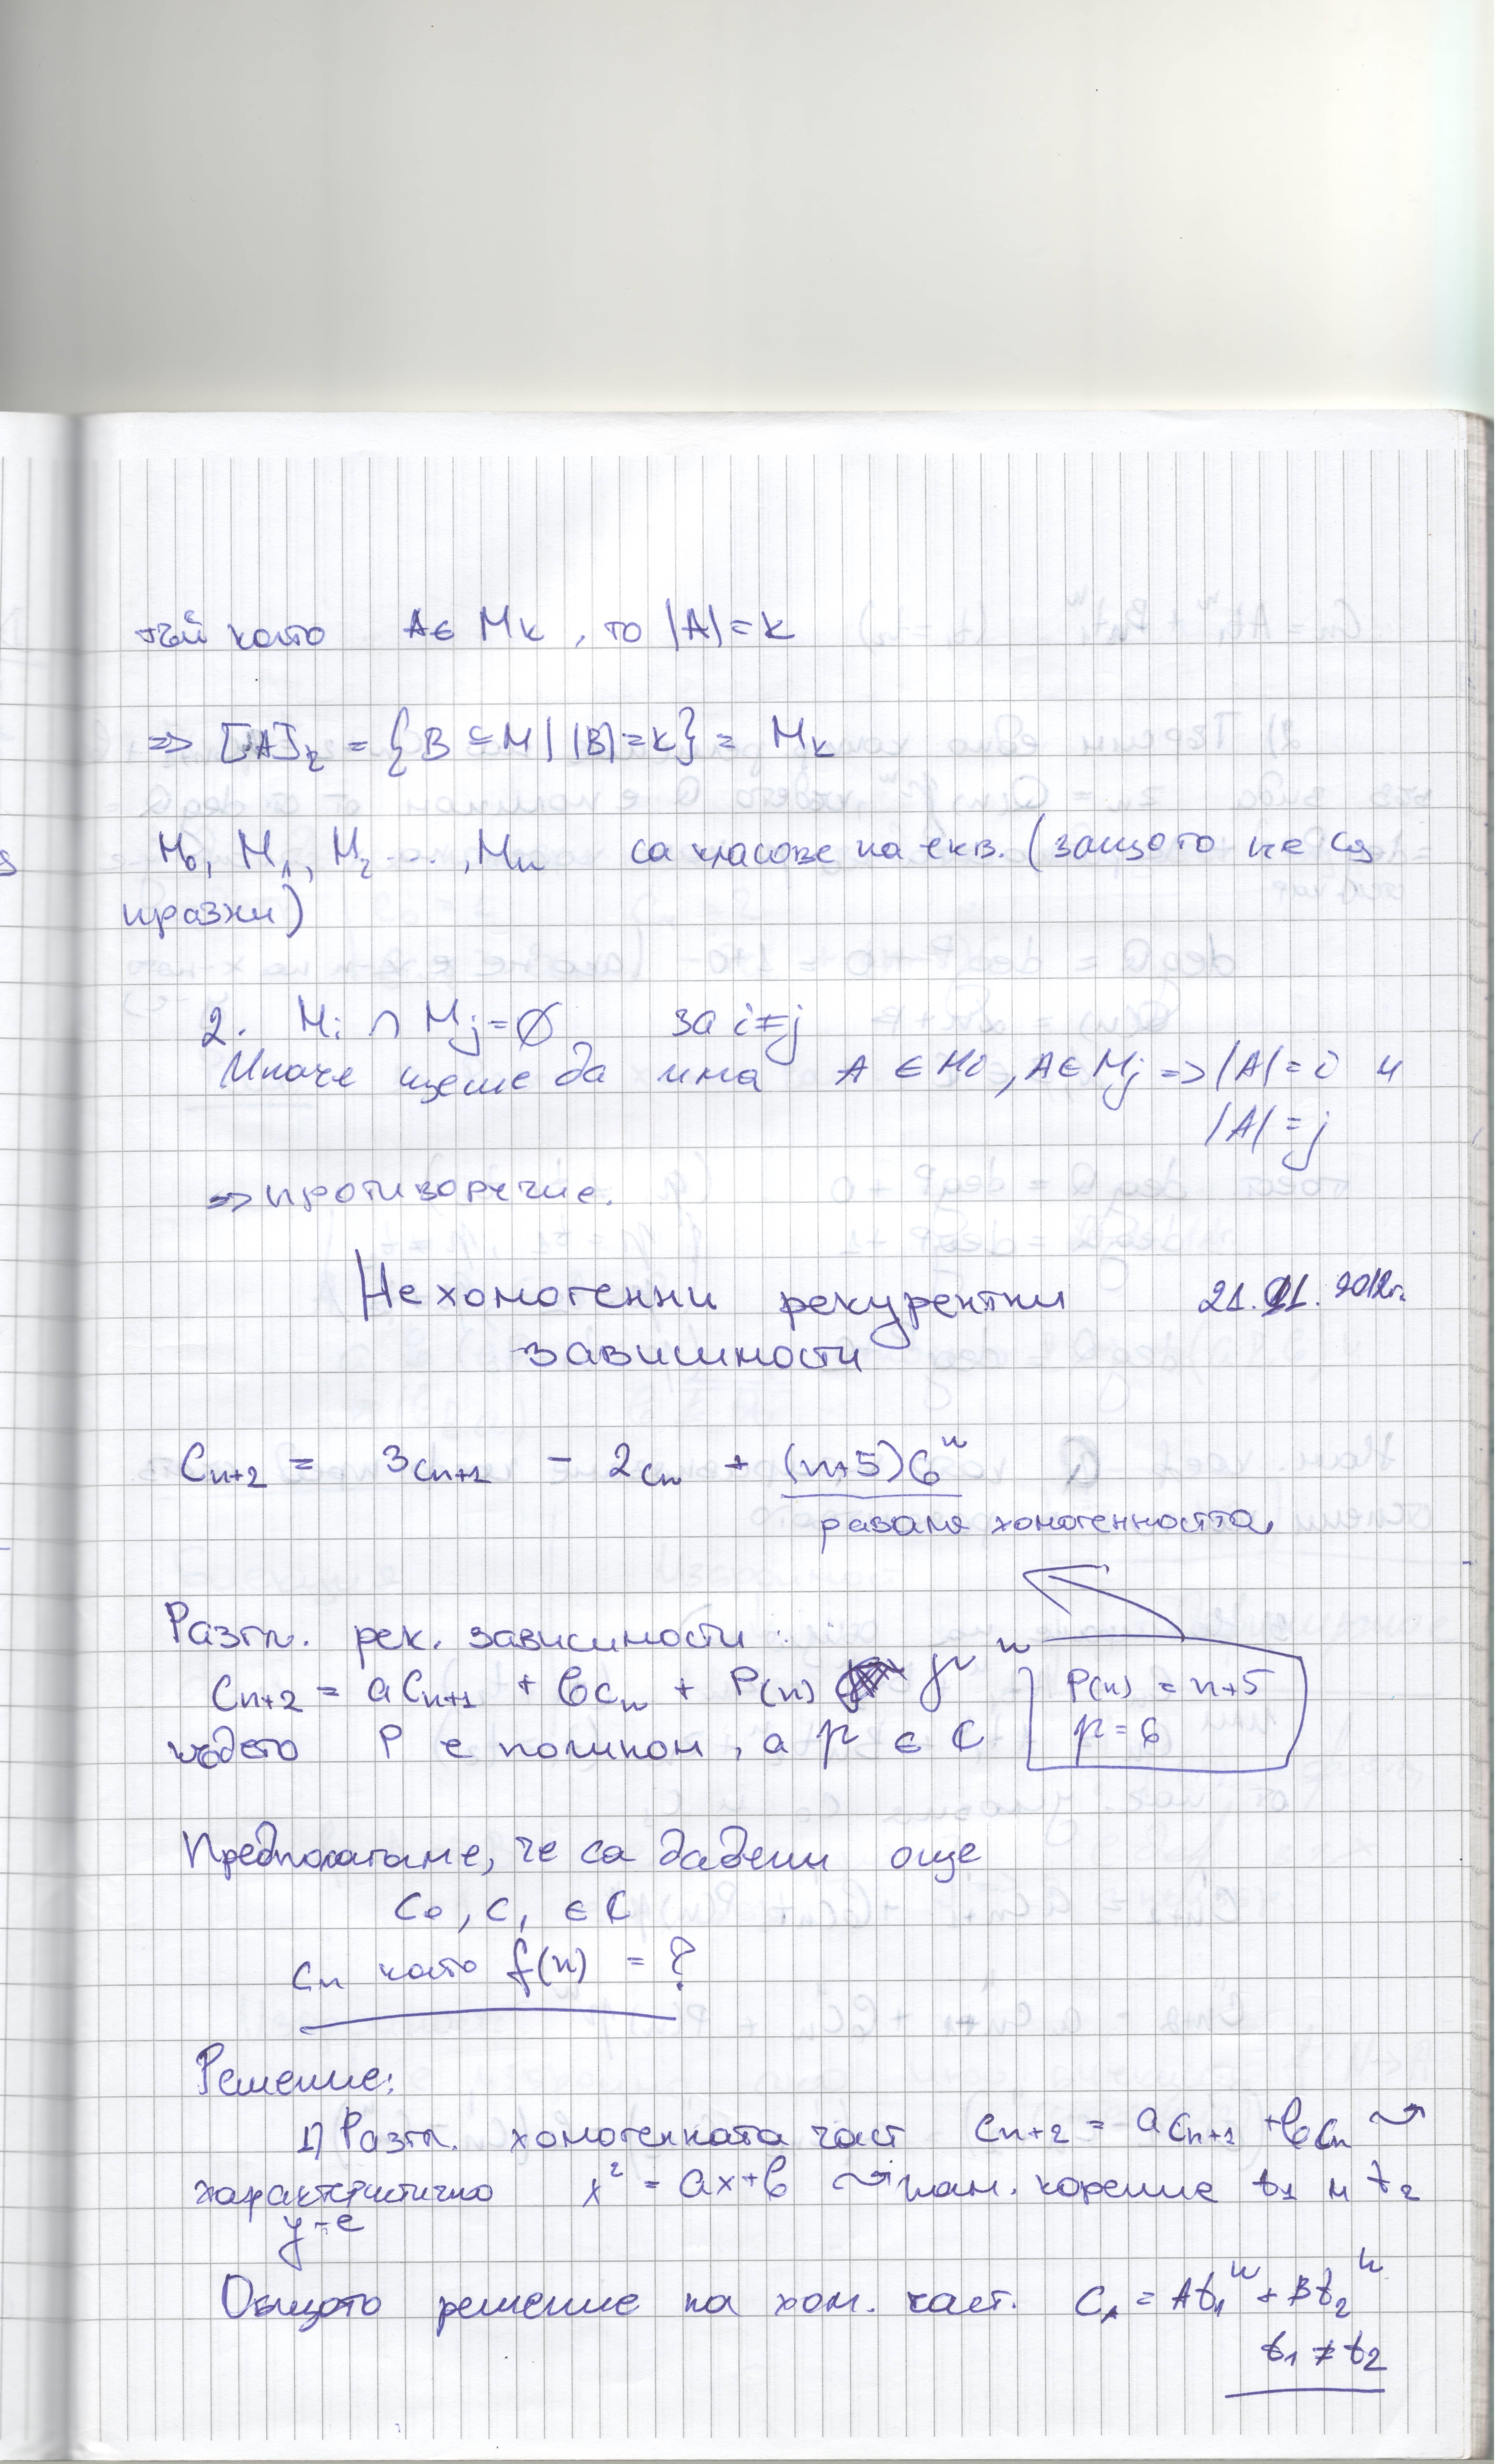 тъй като A ∈ Mk, то |A| = k
=> [A]r = {B ⊆ M | |B| = k} = Mk
M0, M1, M2 ..., Mn са класове на екв. (защото не са
празни)
2. Mi ∩ Mj = ∅ за i ≠ j
Иначе щеше да има A ∈ Mi, A ∈ Mj => |A| = i и
|A| = j
=> противоречие.
Нехомогенни рекурентни 21.11.2012г.
зависимости
Cn+2 = 3cn+1 - 2cn + (n+5)6^n
разваля хомогенността
Разгл. рек. зависимости:
Cn+2 = aCn+1 + bcn + P(n) μ^n
P(n) = n+5
където P е полином, а μ ∈ C
μ = 6
Предполагаме, че са дадени още
C0, C1 ∈ C
Cn като f(n) = ?
Решение:
1) Разгл. хомогенната част Cn+2 = aCn+1 + bCn ⤳
характеристично x² = ax+b ⤳ нам. корените t1 и t2
у-е
Общото решение на хом. част. Cn = At1^n + Bt2^n
t1 ≠ t2